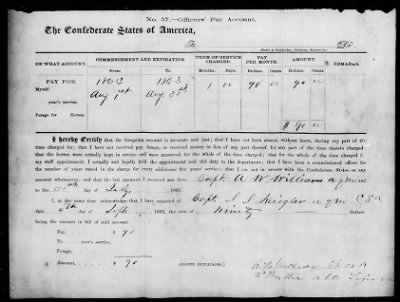 No. 57.—Officers' Pay Account.
The Confederate States of America,
To Dr.
ON WHAT ACCOUNT. COMMENCEMENT AND EXPIRATION. TERM OF SERVICE CHARGED. PAY PER MONTH AMOUNT REMARKS.
From To Months. Days. Dollars. Cents. Dollars. Cents.
PAY FOR 1863 1863
Myself Aug 1st Aug 31st 1 90 90
year's service.
Forage for Horses.
$ 90
I hereby Certify that the foregoing account is accurate and just; that I have not been absent without leave, during any part of the
time charged for; that I have not received pay, forage, or received money in lieu of any part thereof, for any part of the time therein charged; that
the horses were actually kept in service and were mustered for the whole of the time charged; that for the whole of the time charged for
my staff appointment, I actually and legally held the appointment and did duty in the department; that I have been a commissioned officer for
the number of years stated in the charge for every additional five years' service; that I am not in arrears with the Confederate States on any
account whatsoever; and that the last payment I received was from Capt. A W Williams
to the 31st day of July 1862.
I, at the same time, acknowledge that I have received of Capt
this 4th day of Sept 1862, the sum of Ninety dollars,
being the amount in full of said account.
Pay $ 90
year's service,
Forage,
Amount, $ 90
[SIGNED DUPLICATES.]